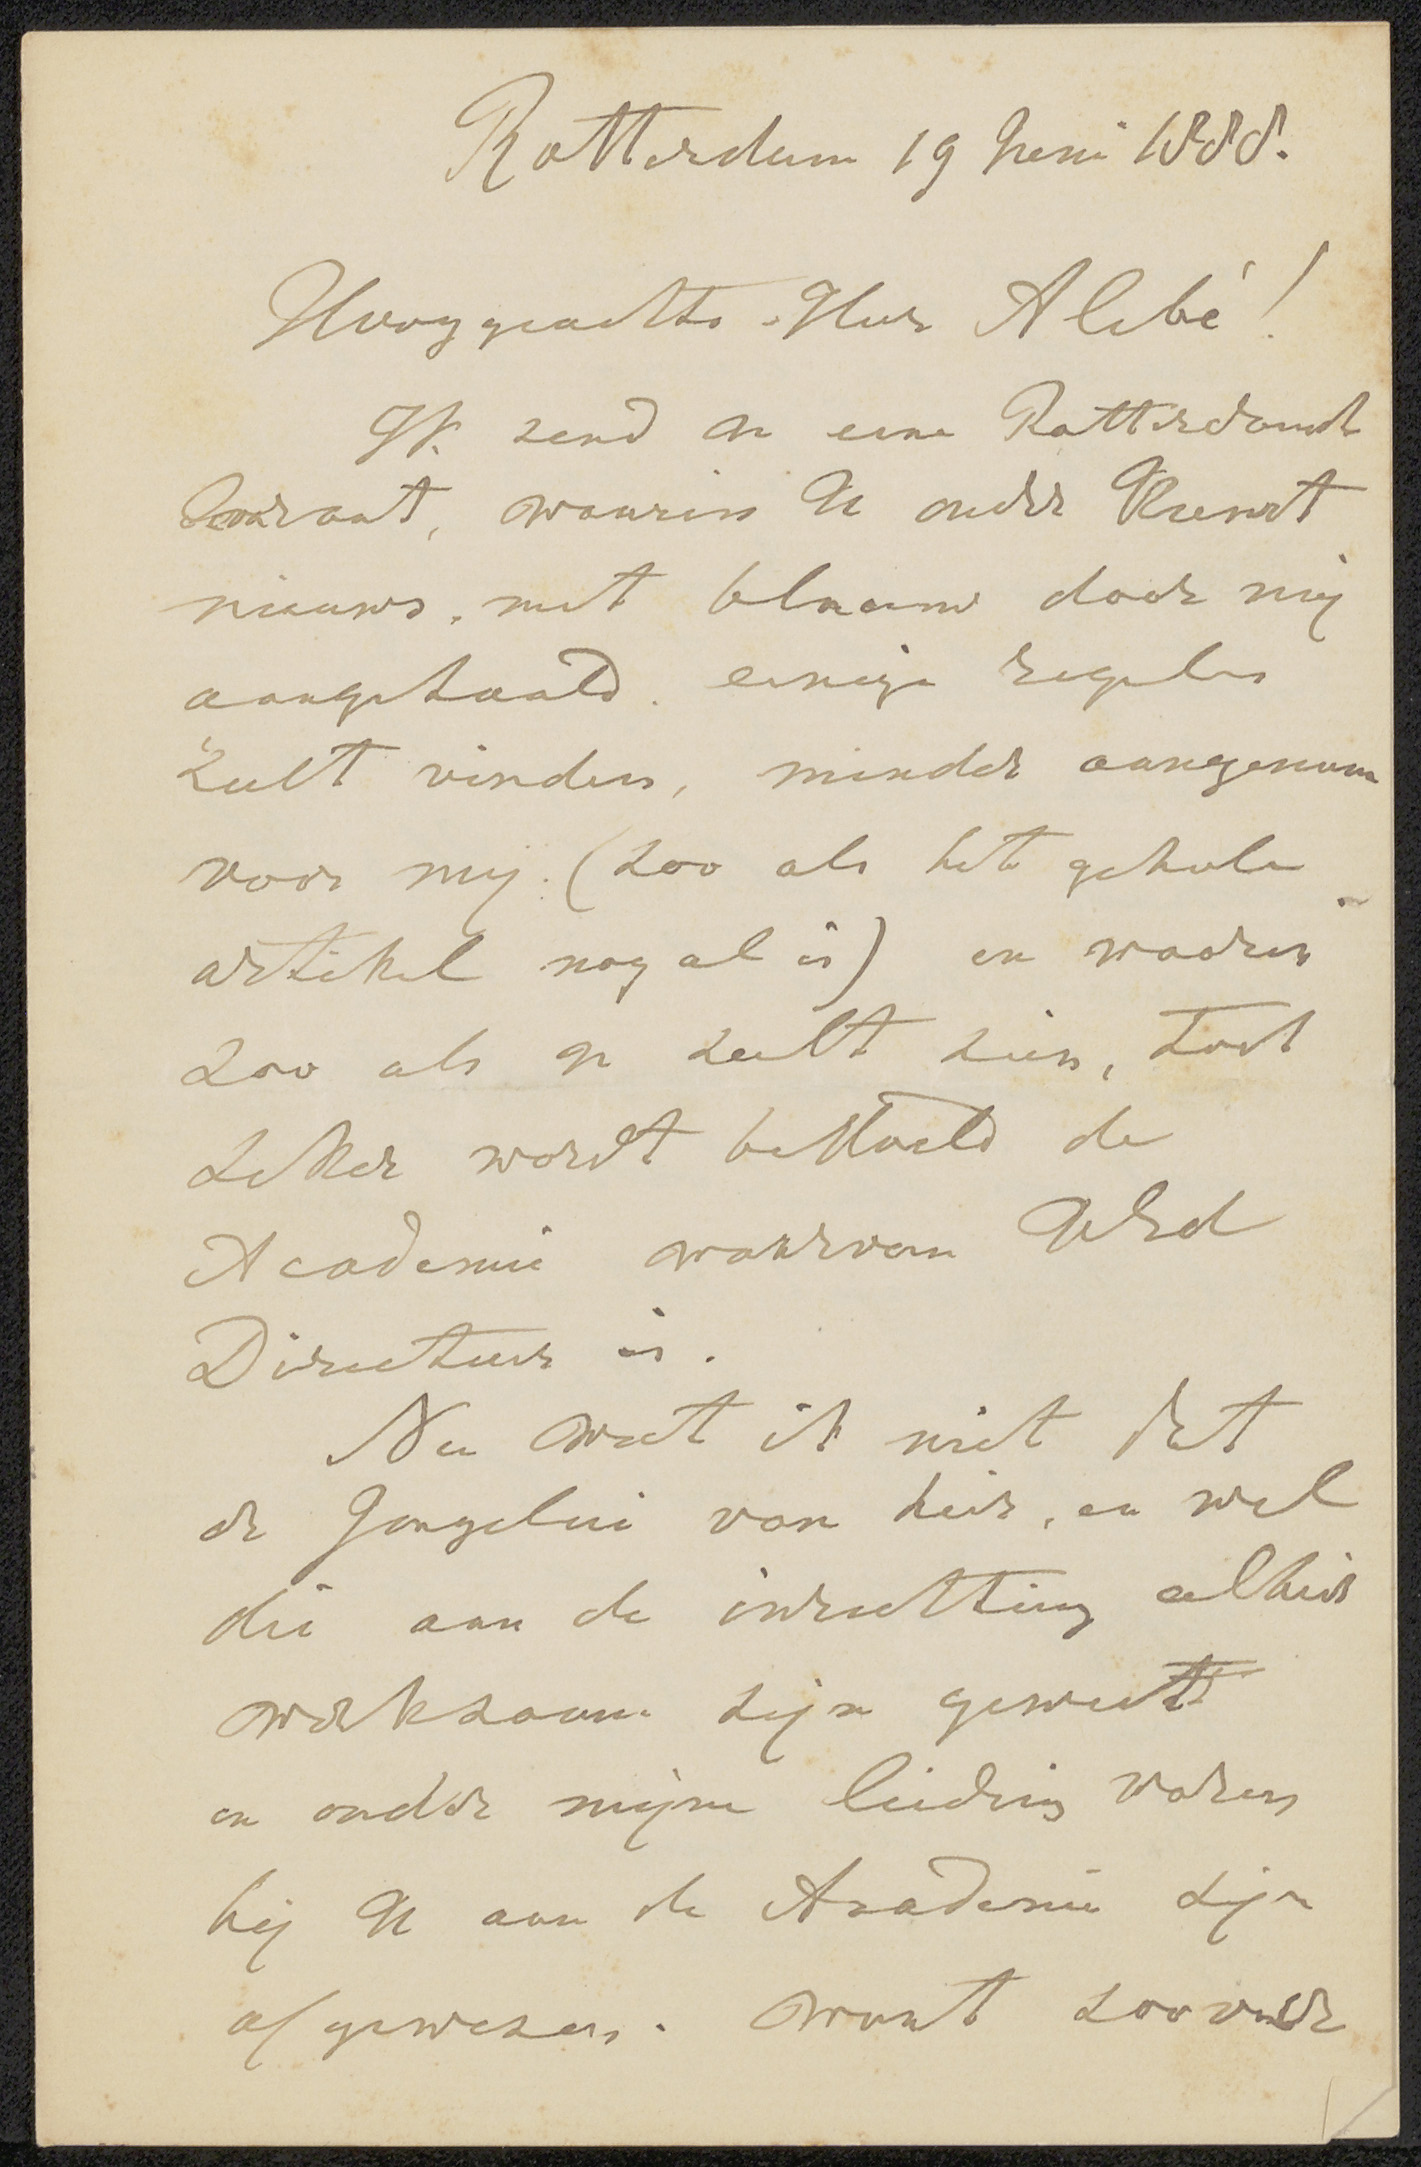 Rotterdam 19 Juni 1888.
Hooggeachte Heer Allebé!
Ik zend U eene Rotterdamsch
Courant, waarin U onder Kunst
nieuws, met blaauw door mij
aangehaald. eenige regels
zult vinden, minder aangenaam
voor mij (zoo als het geheele
artikel nog al is) en waarin
zoo als U zult zien, toch
zeker wordt bedoeld de
Academie waarvan UEd
Directeur is.
Nu weet ik niet dat
de Jongelui van hier, en wel
die aan de inrichting alhier
werkzaam zijn geweest
en onder mijne leiding waren
bij U aan de Academie zijn
afgewezen. want zoo ver